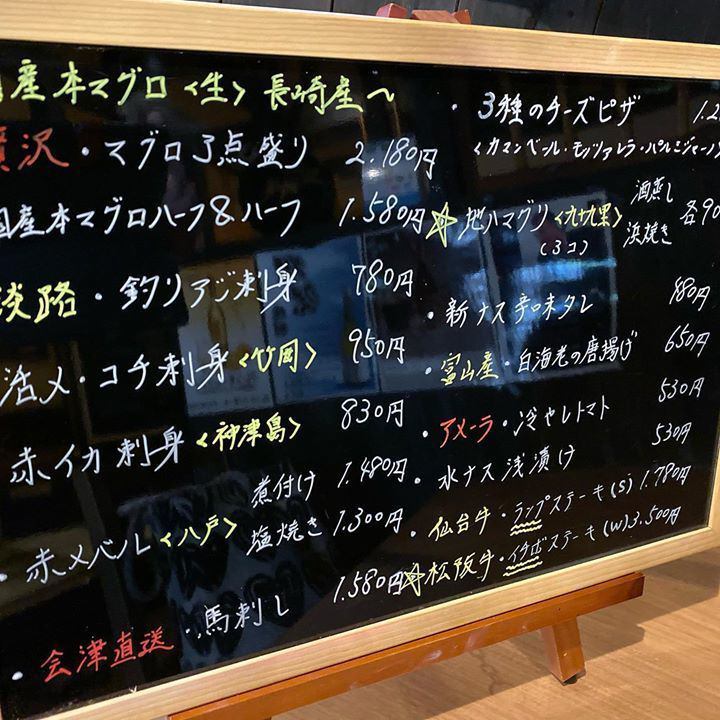 産本マグロ〈生〉長崎産〜
贅沢・マグロ3点盛り 2.180円
国産本マグロハーフ&ハーフ 1.580円
淡路・釣りアジ刺身 780円
活〆・コチ刺身〈竹岡〉 950円
赤イカ刺身〈神津島〉 830円
・赤メバル〈八戸〉 煮付け 1.480円
塩焼き 1.300円
・会津直送・馬刺し 1.580円
・3種のチーズピザ
〈カマンベール・モッツァレラ・パルミジャーノ
☆地ハマグリ〈九十九里〉 酒蒸し
(3コ) 浜焼き 各90
・新ナス辛味タレ 880円
・富山産・白海老の唐揚げ 650円
・アメーラ・冷やしトマト 530円
・水ナス浅漬け 530円
・仙台牛・ランプステーキ(S) 1.780円
☆松阪牛・イチボステーキ(W) 3.500円